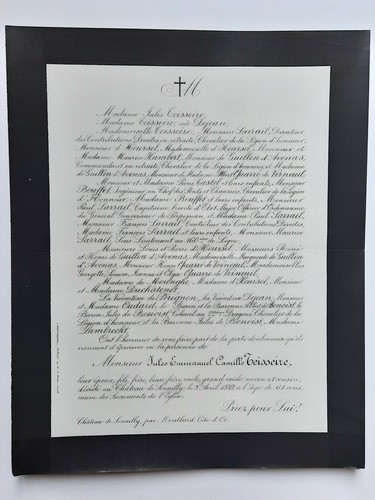 M
Madame Jules Teisseire,
Madame Teisseire, née Dejean,
Mademoiselle Teisseire, Monsieur Sarrail, Directeur
des Contributions Directes en retraite, Chevalier de la Légion d'honneur,
Monsieur d'Heursel, Mademoiselle d'Heursel, Monsieur et
Madame Maurice Humbert, Monsieur de Guillen d'Avenas,
Commandant en retraite, Chevalier de la Légion d'honneur, et Madame
de Guillen d'Avenas, Monsieur et Madame Quarré de Verneuil,
Monsieur et Madame Castel et leurs enfants, Monsieur
Bouffet Ingénieur en Chef des Ponts et Chaussées, Chevalier de la Légion
d'Honneur, Madame Bouffet et leurs enfants, Monsieur
Paul Sarrail, Capitaine Breveté d'Etat-Major, Officier d'Ordonnance
du Général Gouverneur de Perpignan et Madame Paul Sarrail,
Monsieur François Sarrail Contrôleur des Contributions Directes,
Madame François Sarrail et leurs enfants, Monsieur Maurice
Sarrail Sous-Lieutenant au de Ligne,
Messieurs Louis et Pierre d'Heursel, Messieurs René
et Henri de Guillen d'Avenas, Mademoiselle Marguerite de Guillen
d'Avenas, Monsieur Henri Quarré de Verneuil, Mesdemoiselles
Georgette, Louise, Jeanne et Olga Quarré de Verneuil,
Madame de Madame d'Heursel, Monsieur
et Madame Duchartenet,
La Vicomtesse de Pérignon, la Vicomtesse Dejean, Monsieur
et Madame Oudard, le Baron et la Baronne de Benoist, le
Baron Jules de Benoist, Colonel au Dragons, Chevalier de la
Légion d'honneur et la Baronne Jules de Benoist, Madame
Lambrecht,
Ont l'honneur de vous faire part de la perte douloureuse qu'ils
viennent d'éprouver en la personne de
Monsieur Jules Emmanuel Camille Teisseire,
leur époux, fils, frère, beau-frère, oncle, grand-oncle, neveu et cousin,
décédé au Château de le 3 Avril à l'âge de 61 ans,
muni des Sacrements de l'Église.
Priez pour Lui!
Château de par Montbard, Côte-d'Or.